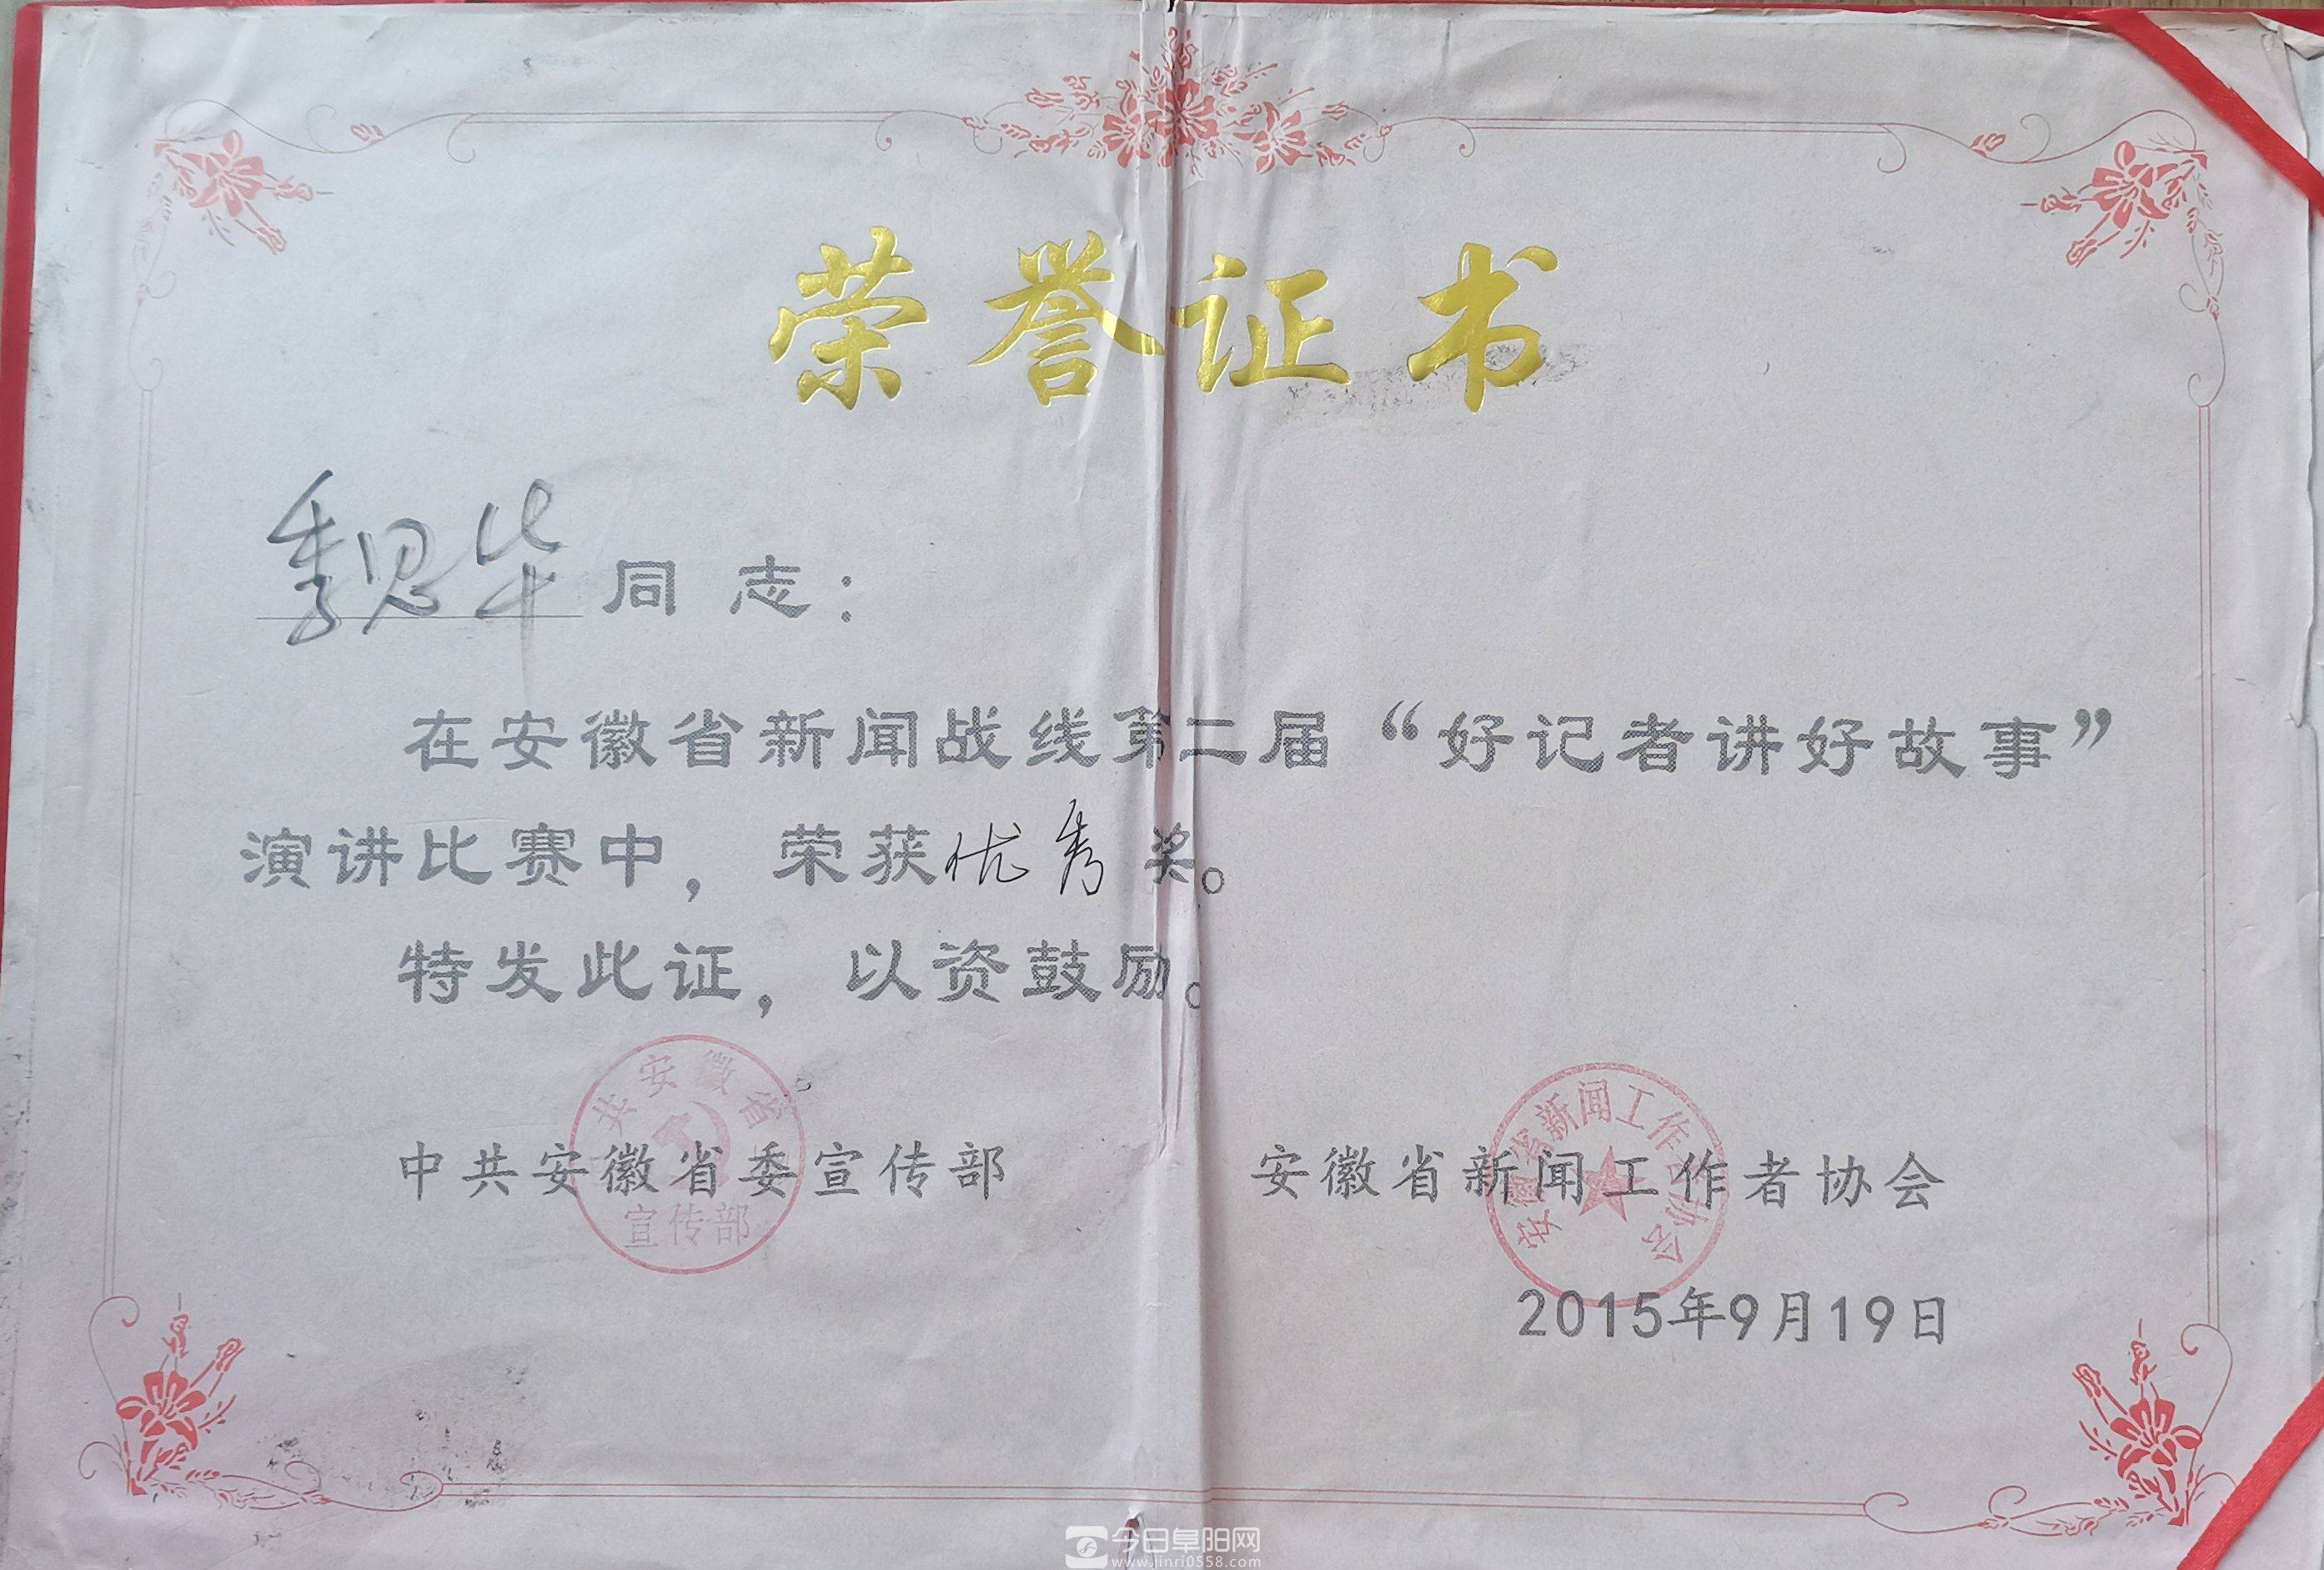 荣誉证书
魏华同志：
在安徽省新闻战线第二届“好记者讲好故事”
演讲比赛中，荣获优秀奖。
特发此证，以资鼓励。
中共安徽省委宣传部 安徽省新闻工作者协会
共安徽省
宣传部
安徽省新闻工作者协会
2015年9月19日
今日阜阳网
www.jinri0558.com